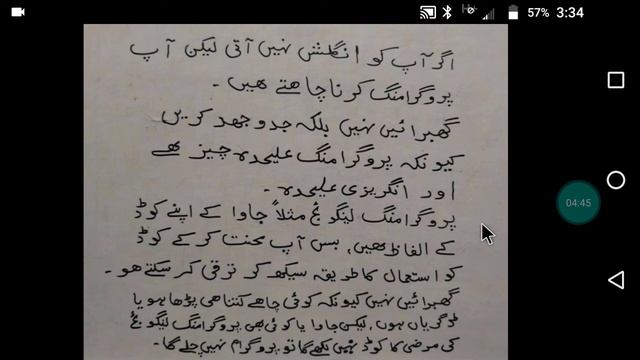 57% 3:34
اگر آپ کو انگلش نہیں آتی لیکن آپ
پروگرامنگ کرنا چاھتے ھیں۔
گھبرائیں نہیں بلکہ جدوجھد کریں
کیونکہ پروگرامنگ علیحدہ چیز ھے
اور انگریزی علیحدہ۔
پروگرامنگ لینگوئج مثلاً جاوا کے اپنے کوڈ
کے الفاظ ھیں، بس آپ محنت کر کے کوڈ
کو استعمال کا طریقہ سیکھ کر ترقی کر سکتے ھو۔
گھبرائیں نہیں کیونکہ کوئی چاھے کتنا ھی پڑھا ھو یا
ڈگریاں ہوں، لیکن جاوا یا کوئی بھی پروگرامنگ لینگوئج
کی مرضی کا کوڈ نہیں لکھے گا تو پروگرام نہیں چلے گا۔
04:45